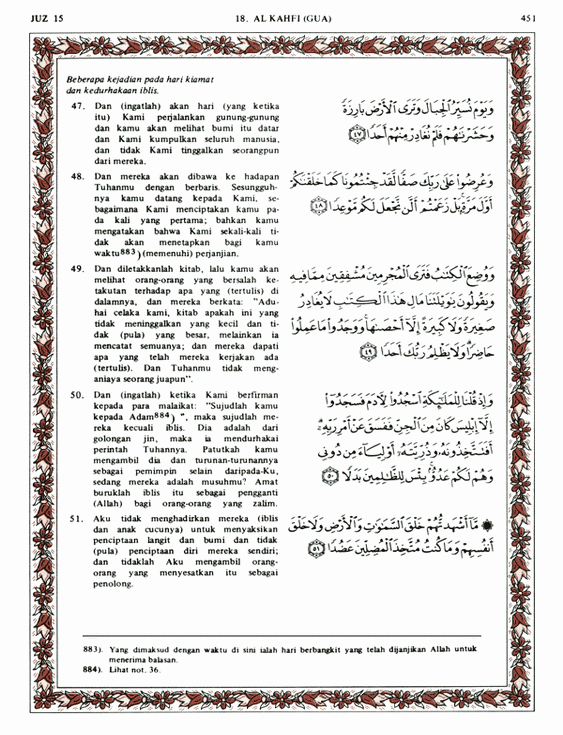 JUZ 15
18. AL KAHFI (GUA)
451
Beberapa kejadian pada hari kiamat
dan kedurhakaan iblis.
47. Dan (ingatlah) akan hari (yang ketika
itu) Kami perjalankan gunung-gunung
dan kamu akan melihat bumi itu datar
dan Kami kumpulkan seluruh manusia,
dan tidak Kami tinggalkan seorangpun
dari mereka.
وَيَوْمَ نُسَيِّرُ الْجِبَالَ وَتَرَى الْأَرْضَ بَارِزَةً
وَحَشَرْنَٰهُمْ فَلَمْ نُغَادِرْ مِنْهُمْ أَحَدًا ٤٧
48. Dan mereka akan dibawa ke hadapan
Tuhanmu dengan berbaris. Sesungguh-
nya kamu datang kepada Kami, se-
bagaimana Kami menciptakan kamu pa-
da kali yang pertama; bahkan kamu
mengatakan bahwa Kami sekali-kali ti-
dak akan menetapkan bagi kamu
waktu883) (memenuhi) perjanjian.
وَعُرِضُوا عَلَىٰ رَبِّكَ صَفًّا لَّقَدْ جِئْتُمُونَا كَمَا خَلَقْنَٰكُمْ
أَوَّلَ مَرَّةٍ بَلْ زَعَمْتُمْ أَلَّن نَّجْعَلَ لَكُم مَّوْعِدًا ٤٨
49. Dan diletakkanlah kitab, lalu kamu akan
melihat orang-orang yang bersalah ke-
takutan terhadap apa yang (tertulis) di
dalamnya, dan mereka berkata: "Adu-
hai celaka kami, kitab apakah ini yang
tidak meninggalkan yang kecil dan ti-
dak (pula) yang besar, melainkan ia
mencatat semuanya; dan mereka dapati
apa yang telah mereka kerjakan ada
(tertulis). Dan Tuhanmu tidak meng-
aniaya seorang juapun".
وَوُضِعَ الْكِتَٰبُ فَتَرَى الْمُجْرِمِينَ مُشْفِقِينَ مِمَّا فِيهِ
وَيَقُولُونَ يَٰوَيْلَتَنَا مَالِ هَٰذَا الْكِتَٰبِ لَا يُغَادِرُ
صَغِيرَةً وَلَا كَبِيرَةً إِلَّا أَحْصَىٰهَا وَوَجَدُوا مَا عَمِلُوا
حَاضِرًا وَلَا يَظْلِمُ رَبُّكَ أَحَدًا ٤٩
50. Dan (ingatlah) ketika Kami berfirman
kepada para malaikat: "Sujudlah kamu
kepada Adam884) ", maka sujudlah me-
reka kecuali iblis. Dia adalah dari
golongan jin, maka ia mendurhakai
perintah Tuhannya. Patutkah kamu
mengambil dia dan turunan-turunannya
sebagai pemimpin selain daripada-Ku,
sedang mereka adalah musuhmu? Amat
buruklah iblis itu sebagai pengganti
(Allah) bagi orang-orang yang zalim.
وَإِذْ قُلْنَا لِلْمَلَٰٓئِكَةِ اسْجُدُوا لِـَٔادَمَ فَسَجَدُوٓا
إِلَّآ إِبْلِيسَ كَانَ مِنَ الْجِنِّ فَفَسَقَ عَنْ أَمْرِ رَبِّهِۦٓ
أَفَتَتَّخِذُونَهُۥ وَذُرِّيَّتَهُۥٓ أَوْلِيَآءَ مِن دُونِى
وَهُمْ لَكُمْ عَدُوٌّۢ بِئْسَ لِلظَّٰلِمِينَ بَدَلًا ٥٠
51. Aku tidak menghadirkan mereka (iblis
dan anak cucunya) untuk menyaksikan
penciptaan langit dan bumi dan tidak
(pula) penciptaan diri mereka sendiri;
dan tidaklah Aku mengambil orang-
orang yang menyesatkan itu sebagai
penolong.
۞ مَّآ أَشْهَدتُّهُمْ خَلْقَ السَّمَٰوَٰتِ وَالْأَرْضِ وَلَا خَلْقَ
أَنفُسِهِمْ وَمَا كُنتُ مُتَّخِذَ الْمُضِلِّينَ عَضُدًا ٥١
883). Yang dimaksud dengan waktu di sini ialah hari berbangkit yang telah dijanjikan Allah untuk
menerima balasan.
884). Lihat not. 36.